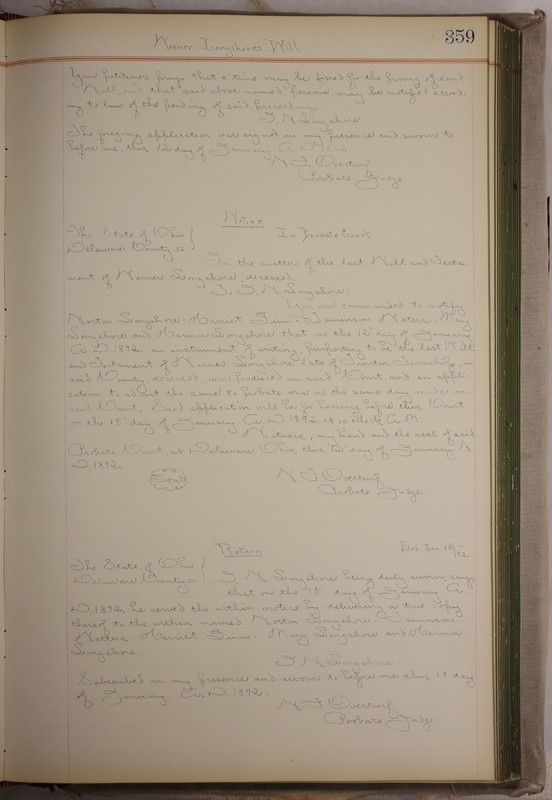 359
Warner Longshore's Will
Your petitioner prays that a time may be fixed for the proving of said
Will, and that said above named persons may be notified accord-
ing to law of the pending of said proceeding.
T. N. Longshore
The foregoing application was signed in my presence and sworn to
before me, this 12 day of January A. D. 1892.
N. F. Overturf
Probate Judge
Notice
The State of Ohio }
Delaware County, ss } In Probate Court.
In the matter of the last Will and Testa-
ment of Warner Longshore, deceased.
To T. N. Longshore:
You are commanded to notify
Norton Longshore, Harriet Finn, Waters, Mary
Longshore and Harmon Longshore that on the 12" day of January
A. D. 1892. an instrument of writing, purporting to be the last Will
and Testament of Warner Longshore late of Trenton Township, in
said County, deceased, was produced in said Court, and an appli-
cation to admit the same to probate was on the same day made in
said Court. Said application will be for hearing before this Court
on the 18" day of January A. D. 1892 at 10 o'clock A. M.
Witness, my hand and the seal of said
Probate Court, at Delaware, Ohio, this 12" day of January A.
D. 1892.
Seal
N. F. Overturf
Probate Judge
Return
Filed Jan. 18/92
The State of Ohio }
Delaware County, ss } T. N. Longshore being duly sworn, says
that on the 18" day of January A.
D. 1892, he served the within notice by delivering a true copy
thereof to the within named Norton Longshore,
Waters, Harriet Finn, Mary Longshore and Harmon
Longshore.
T. N. Longshore
Subscribed in my presence and sworn to before me this 18 day
of January A. D. 1892.
N. F. Overturf
Probate Judge